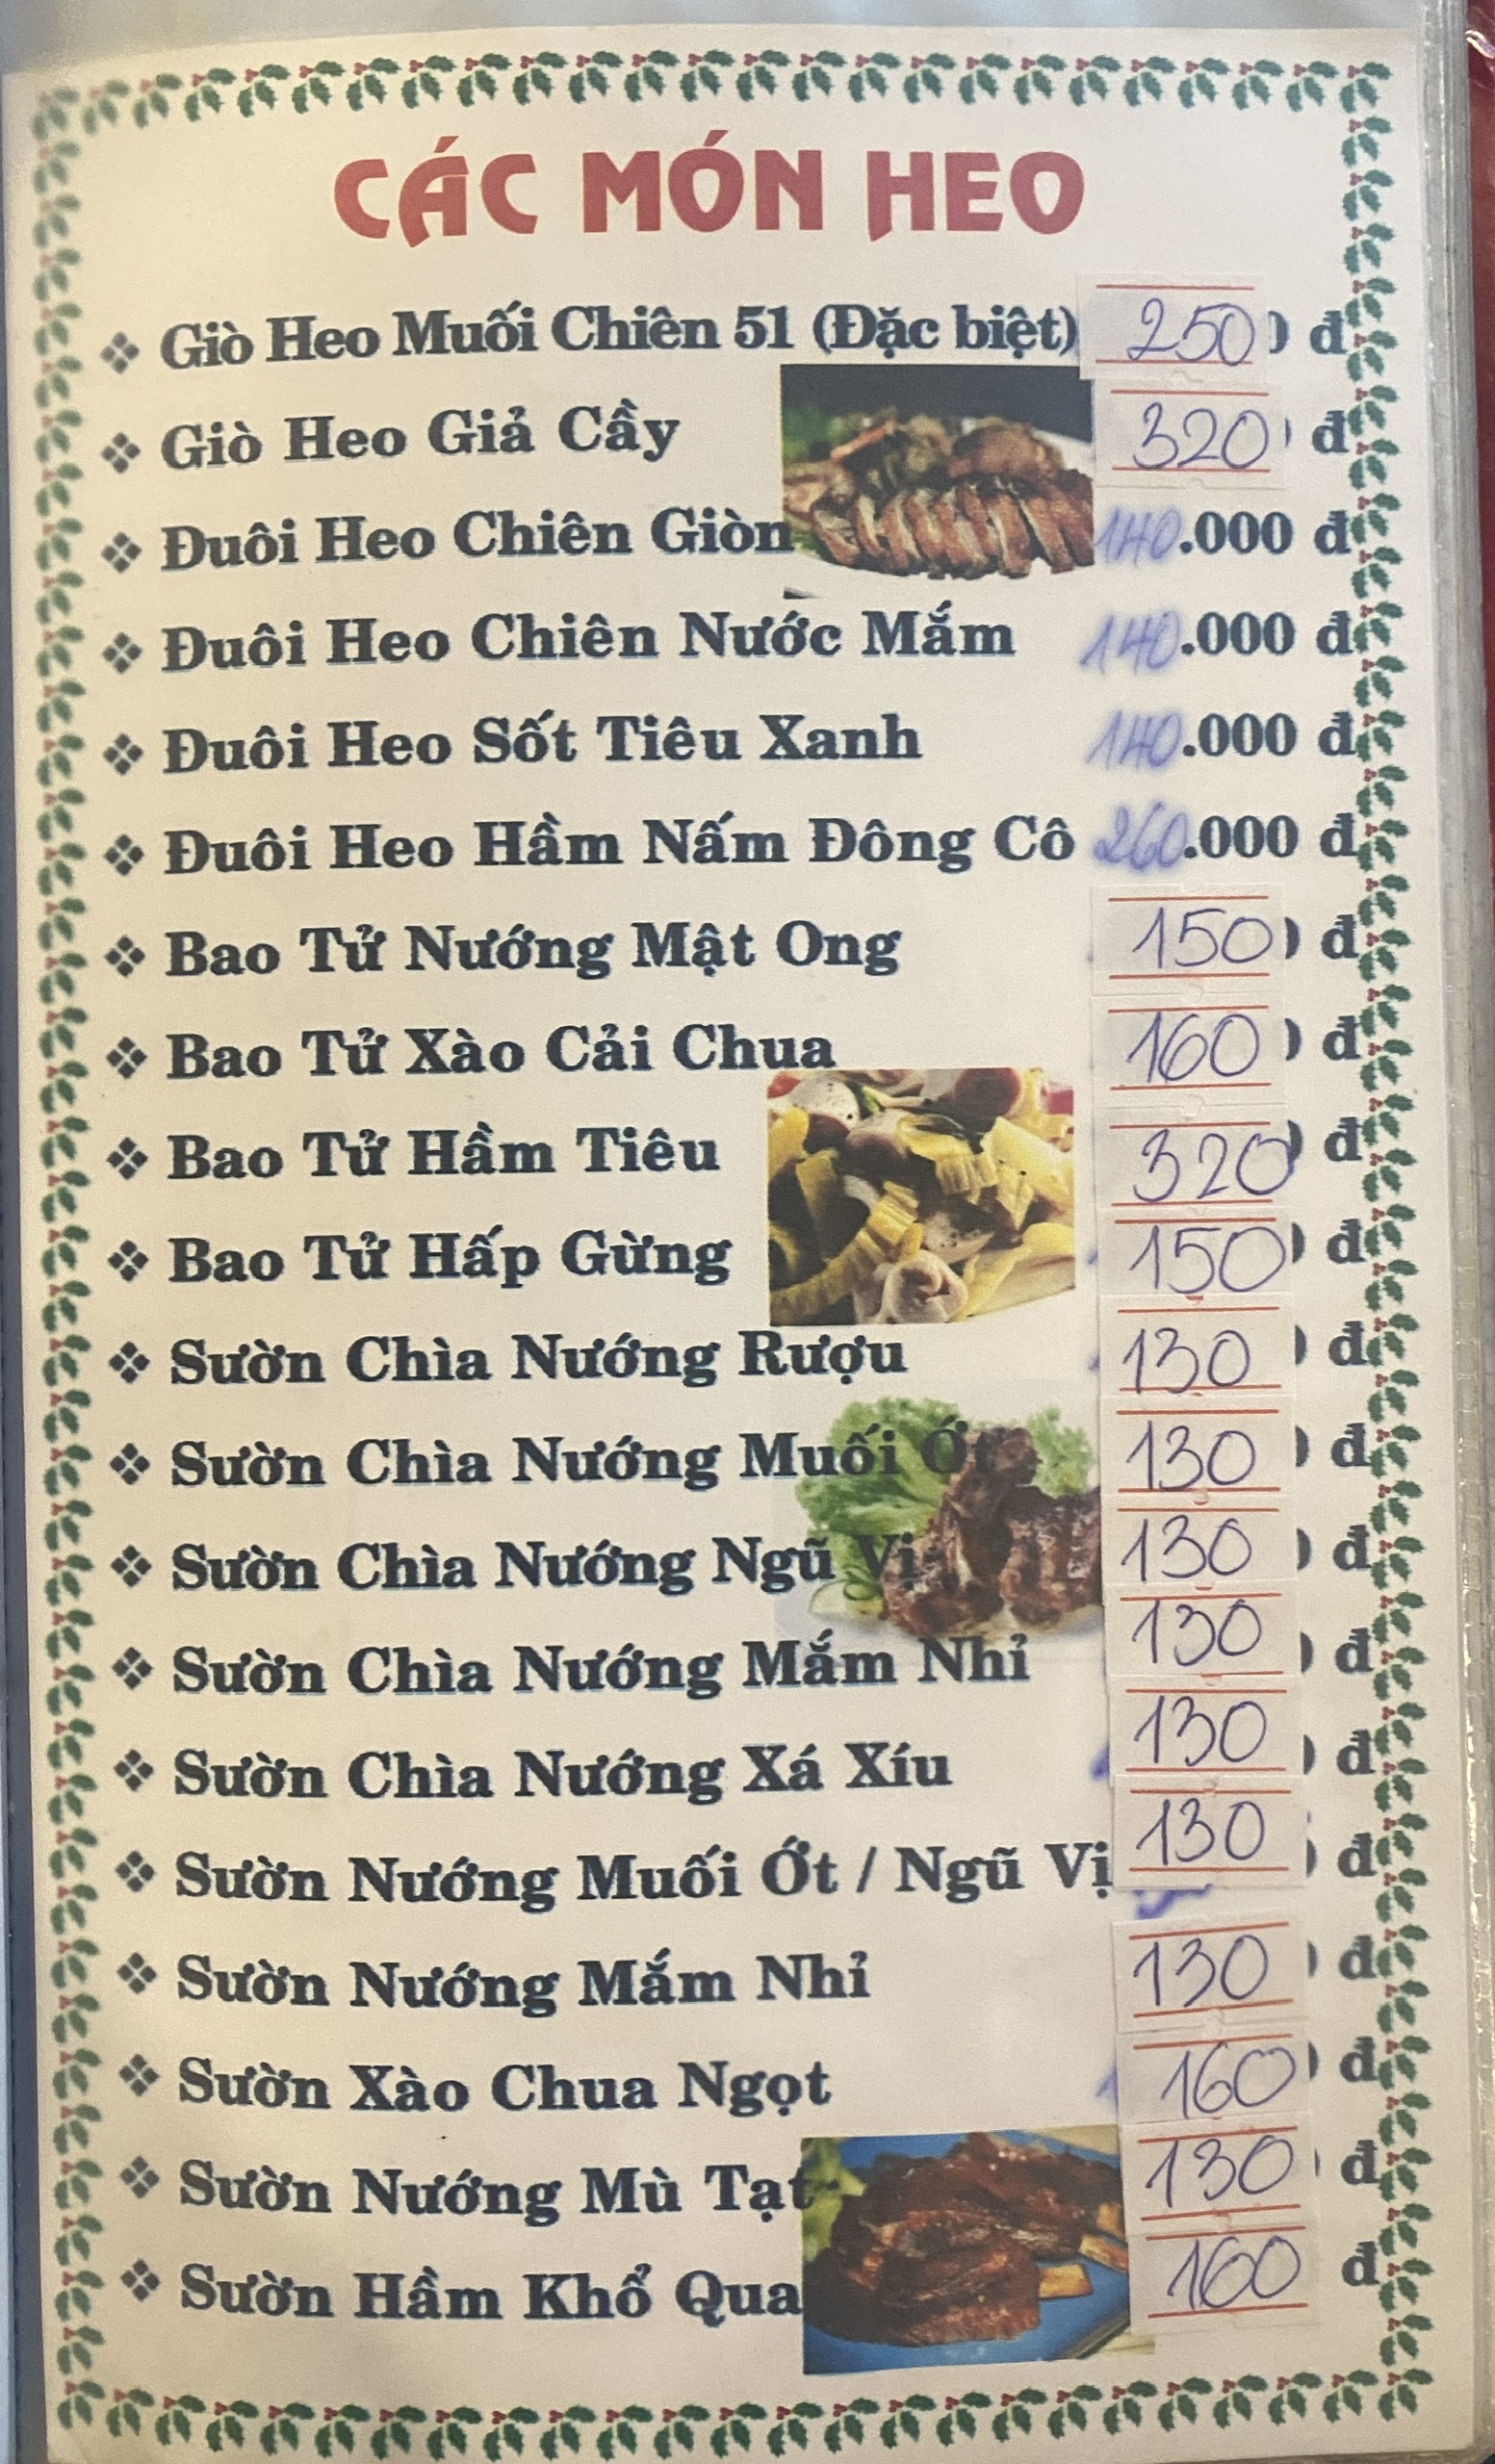 CÁC MÓN HEO
❖ Giò Heo Muối Chiên 51 (Đặc biệt) 250 đ
❖ Giò Heo Giả Cầy 320 đ
❖ Đuôi Heo Chiên Giòn 140.000 đ
❖ Đuôi Heo Chiên Nước Mắm 140.000 đ
❖ Đuôi Heo Sốt Tiêu Xanh 140.000 đ
❖ Đuôi Heo Hầm Nấm Đông Cô 260.000 đ
❖ Bao Tử Nướng Mật Ong 150 đ
❖ Bao Tử Xào Cải Chua 160 đ
❖ Bao Tử Hầm Tiêu 320 đ
❖ Bao Tử Hấp Gừng 150 đ
❖ Sườn Chìa Nướng Rượu 130 đ
❖ Sườn Chìa Nướng Muối Ớt 130 đ
❖ Sườn Chìa Nướng Ngũ Vị 130 đ
❖ Sườn Chìa Nướng Mắm Nhỉ 130 đ
❖ Sườn Chìa Nướng Xá Xíu 130 đ
❖ Sườn Nướng Muối Ớt / Ngũ Vị 130 đ
❖ Sườn Nướng Mắm Nhỉ 130 đ
❖ Sườn Xào Chua Ngọt 160 đ
❖ Sườn Nướng Mù Tạt 130 đ
❖ Sườn Hầm Khổ Qua 160 đ